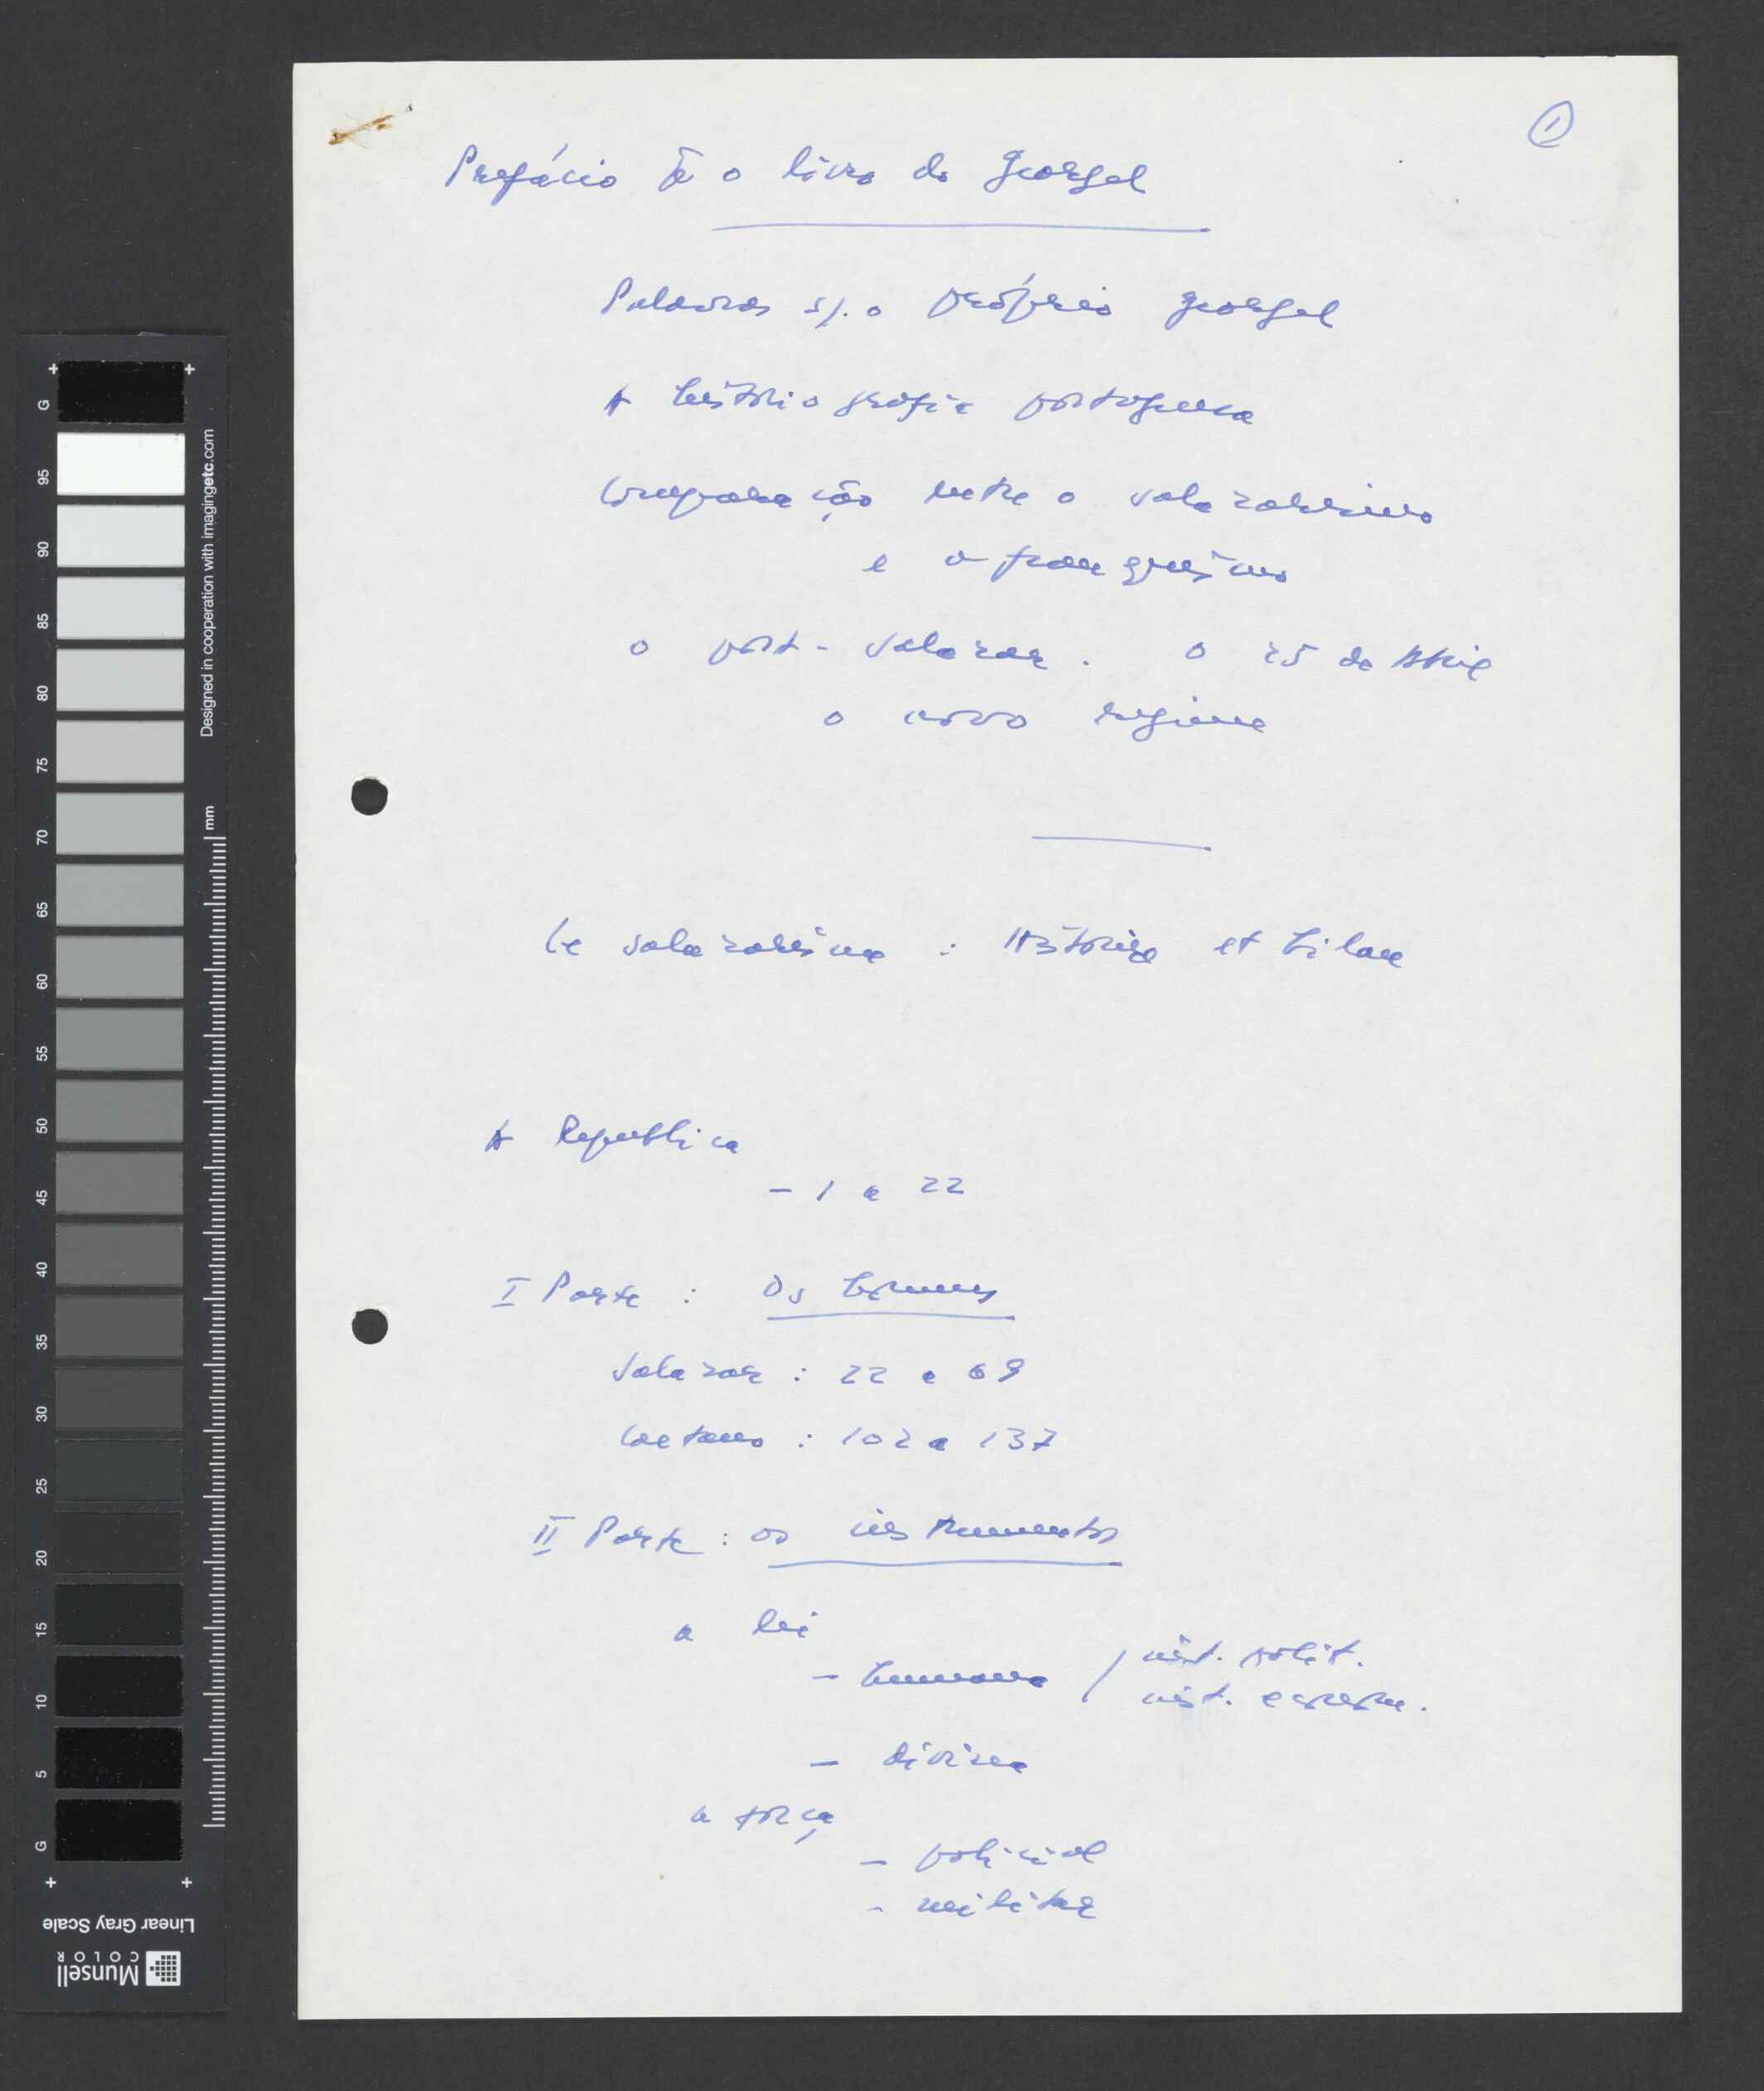 1
Prefácio p̄ o livro do Georgel
Palavras s/. o próprio Georgel
A historiografia portuguesa
Comparação entre o salazarismo
e o franquismo
O post-Salazar. O 25 de Abril
O novo regime
Le salazarisme : Histoire et bilan
A Republica
- 1 a 22
I Parte : Os homens
Salazar : 22 a 69
Caetano : 102 a 137
II Parte : os instrumentos
a lei
- humana / inst. polit.
inst. econom.
- divina
a força
- policial
- militar
G
95
90
85
80
75
70
65
60
55
50
45
40
35
30
25
20
15
10
5
G
Designed in cooperation with imagingetc.com
mm
Linear Gray Scale
Munsell
COLOR